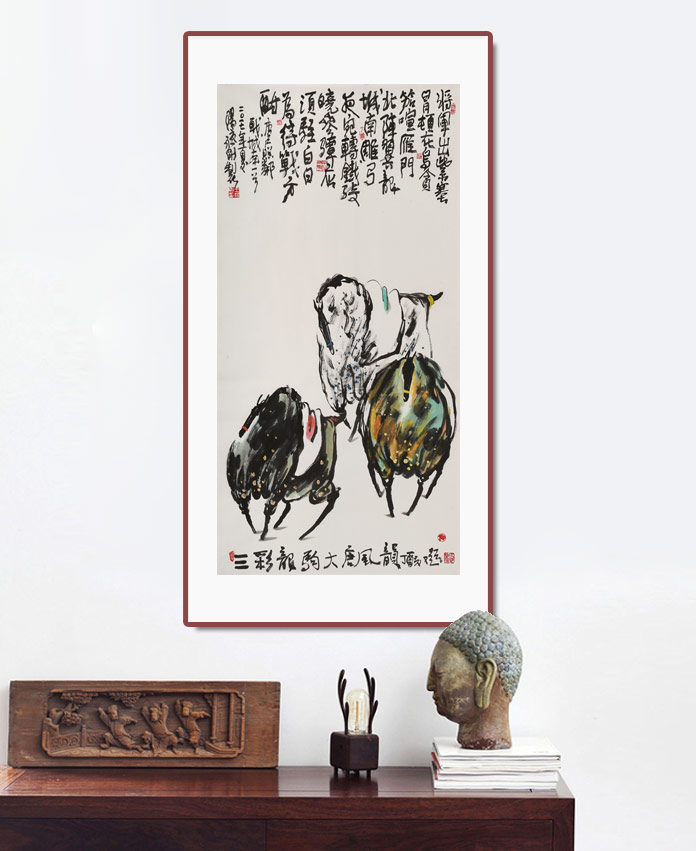 將軍出紫塞
冒頓在烏貪
笳喧雁門
北陣翼龍
城南雕弓
夜宛轉鐵騎
曉參驔應
須駐白日
為待戰方
酣
戰城南一首
三彩龍駒大唐風韻